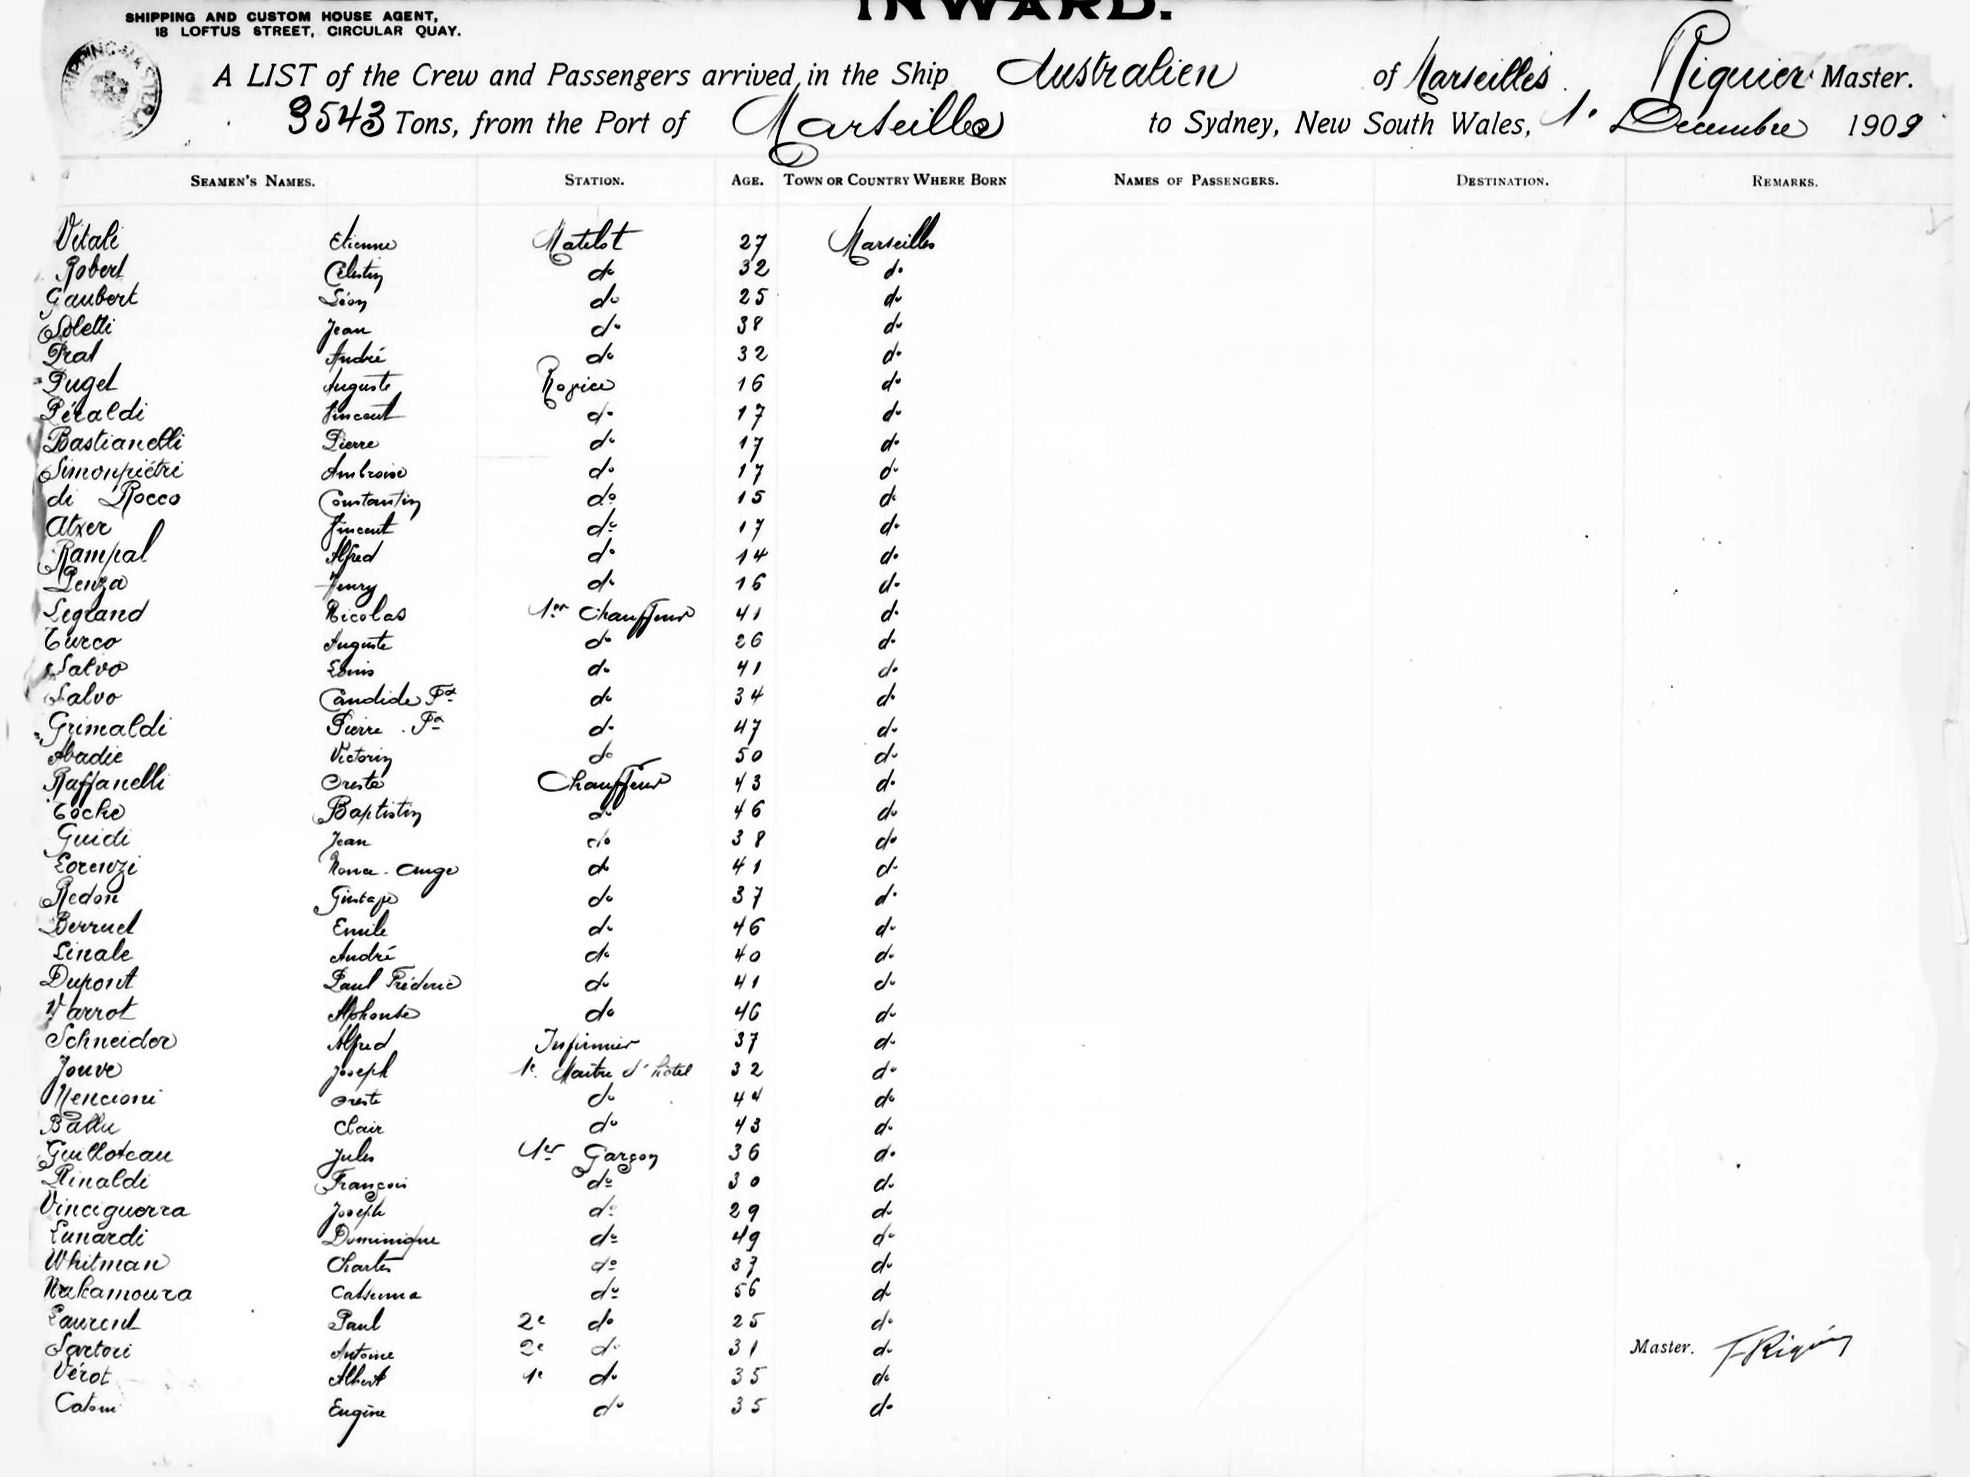 INWARD.
SHIPPING AND CUSTOM HOUSE AGENT,
18 LOFTUS STREET, CIRCULAR QUAY.
A LIST of the Crew and Passengers arrived in the Ship Australien of Marseilles Riquier Master.
3543 Tons, from the Port of Marseilles to Sydney, New South Wales, 1. Decembre 1909
SEAMEN'S NAMES. STATION. AGE. TOWN OR COUNTRY WHERE BORN NAMES OF PASSENGERS. DESTINATION. REMARKS.
Vitali Etienne Matelot 27 Marseilles
Robert Célestin do 32 do
Gaubert Léon do 25 do
Soletti Jean do 38 do
Prat André do 32 do
Puget Auguste Novice 16 do
Péraldi Vincent do 17 do
Bastianelli Pierre do 17 do
Simonpiétri Ambroise do 17 do
di Rocco Constantin do 15 do
Atxer Vincent do 17 do
Rampal Alfred do 14 do
Penza Henry do 16 do
Legrand Nicolas 1er Chauffeur 41 do
Turco Auguste do 26 do
Salvo Louis do 41 do
Salvo Candide Fs do 34 do
Grimaldi Pierre Fs do 47 do
Abadie Victorin do 50 do
Raffanelli Oreste Chauffeur 43 do
Coche Baptistin do 46 do
Guidi Jean do 38 do
Lorenzi Ange do 41 do
Redon Gustave do 37 do
Berruel Emile do 46 do
Linale André do 40 do
Dupont Paul Fréderic do 41 do
Varrot Alphonse do 46 do
Schneider Alfred Infirmier 37 do
Jouve Joseph 1e Maître d'hôtel 32 do
Mencioni Oreste do 44 do
Ballu Clair do 43 do
Guilloteau Jules 1er Garçon 36 do
Rinaldi François do 30 do
Vinciguerra Joseph do 29 do
Lunardi Dominique do 49 do
Whitman Charles do 37 do
Nakamoura Catsuma do 56 do
Laurent Paul 2e do 25 do
Sartori Antoine 2e do 31 do
Vérot Albert 1e do 35 do
Catoni Eugène do 35 do
Master. F Riquier